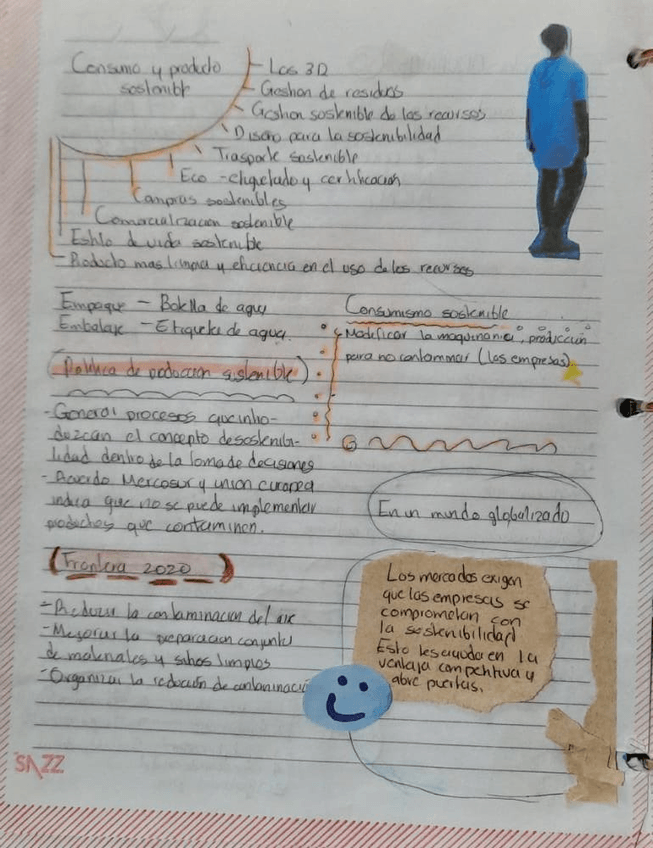 Consumo y producto
sostenible
- Las 3D
- Gestion de residuos
- Gestion sostenible de los recursos
Diseño para la sostenibilidad
Trasporte sostenible
Eco-etiquetado y certificacion
Compras sostenibles
Comercializacion sostenible
Estilo de vida sostenible
- Producto mas limpia y eficiencia en el uso de los recursos
Empaque - Botella de agua
Embalaje - Etiqueta de agua.
(Politica de produccion sostenible)
- General procesos que inho-
dezcan el concepto de sostenibi-
lidad dentro de la toma de decisiones
- Acuerdo Mercosur y union europea
indica que no se puede implementar
productos que contaminen.
(Frontera 2020)
- Reducir la contaminacion del aire
- Mejorar la preparacion conjunta
de materiales y sitios limpios
- Organizar la reduccion de contaminacio
Consumismo sostenible
Modificar la maquinaria, produccion
para no contaminar (las empresas).
En un mundo globalizado
Los mercados exigen
que las empresas se
comprometan con
la sostenibilidad
Esto les ayuda en la
ventaja competitiva y
abre puertas.
SAZZ